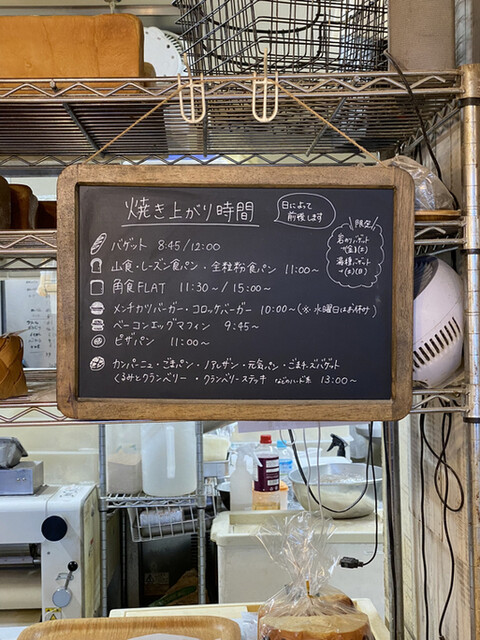 焼き上がり時間
日によって
前後します
限定
バゲット 8:45/12:00
山食・レーズン食パン・全粒粉食パン 11:00〜
角食FLAT 11:30〜/15:00〜
メンチカツバーガー・コロッケバーガー 10:00〜(※水曜日はお休み)
ベーコンエッグマフィン 9:45〜
ピザパン 11:00〜
カンパーニュ・ごまパン・ノアレザン・元気パン・ごまチーズバゲット
くるみとクランベリー・クランベリーステッキ などのハード系 13:00〜